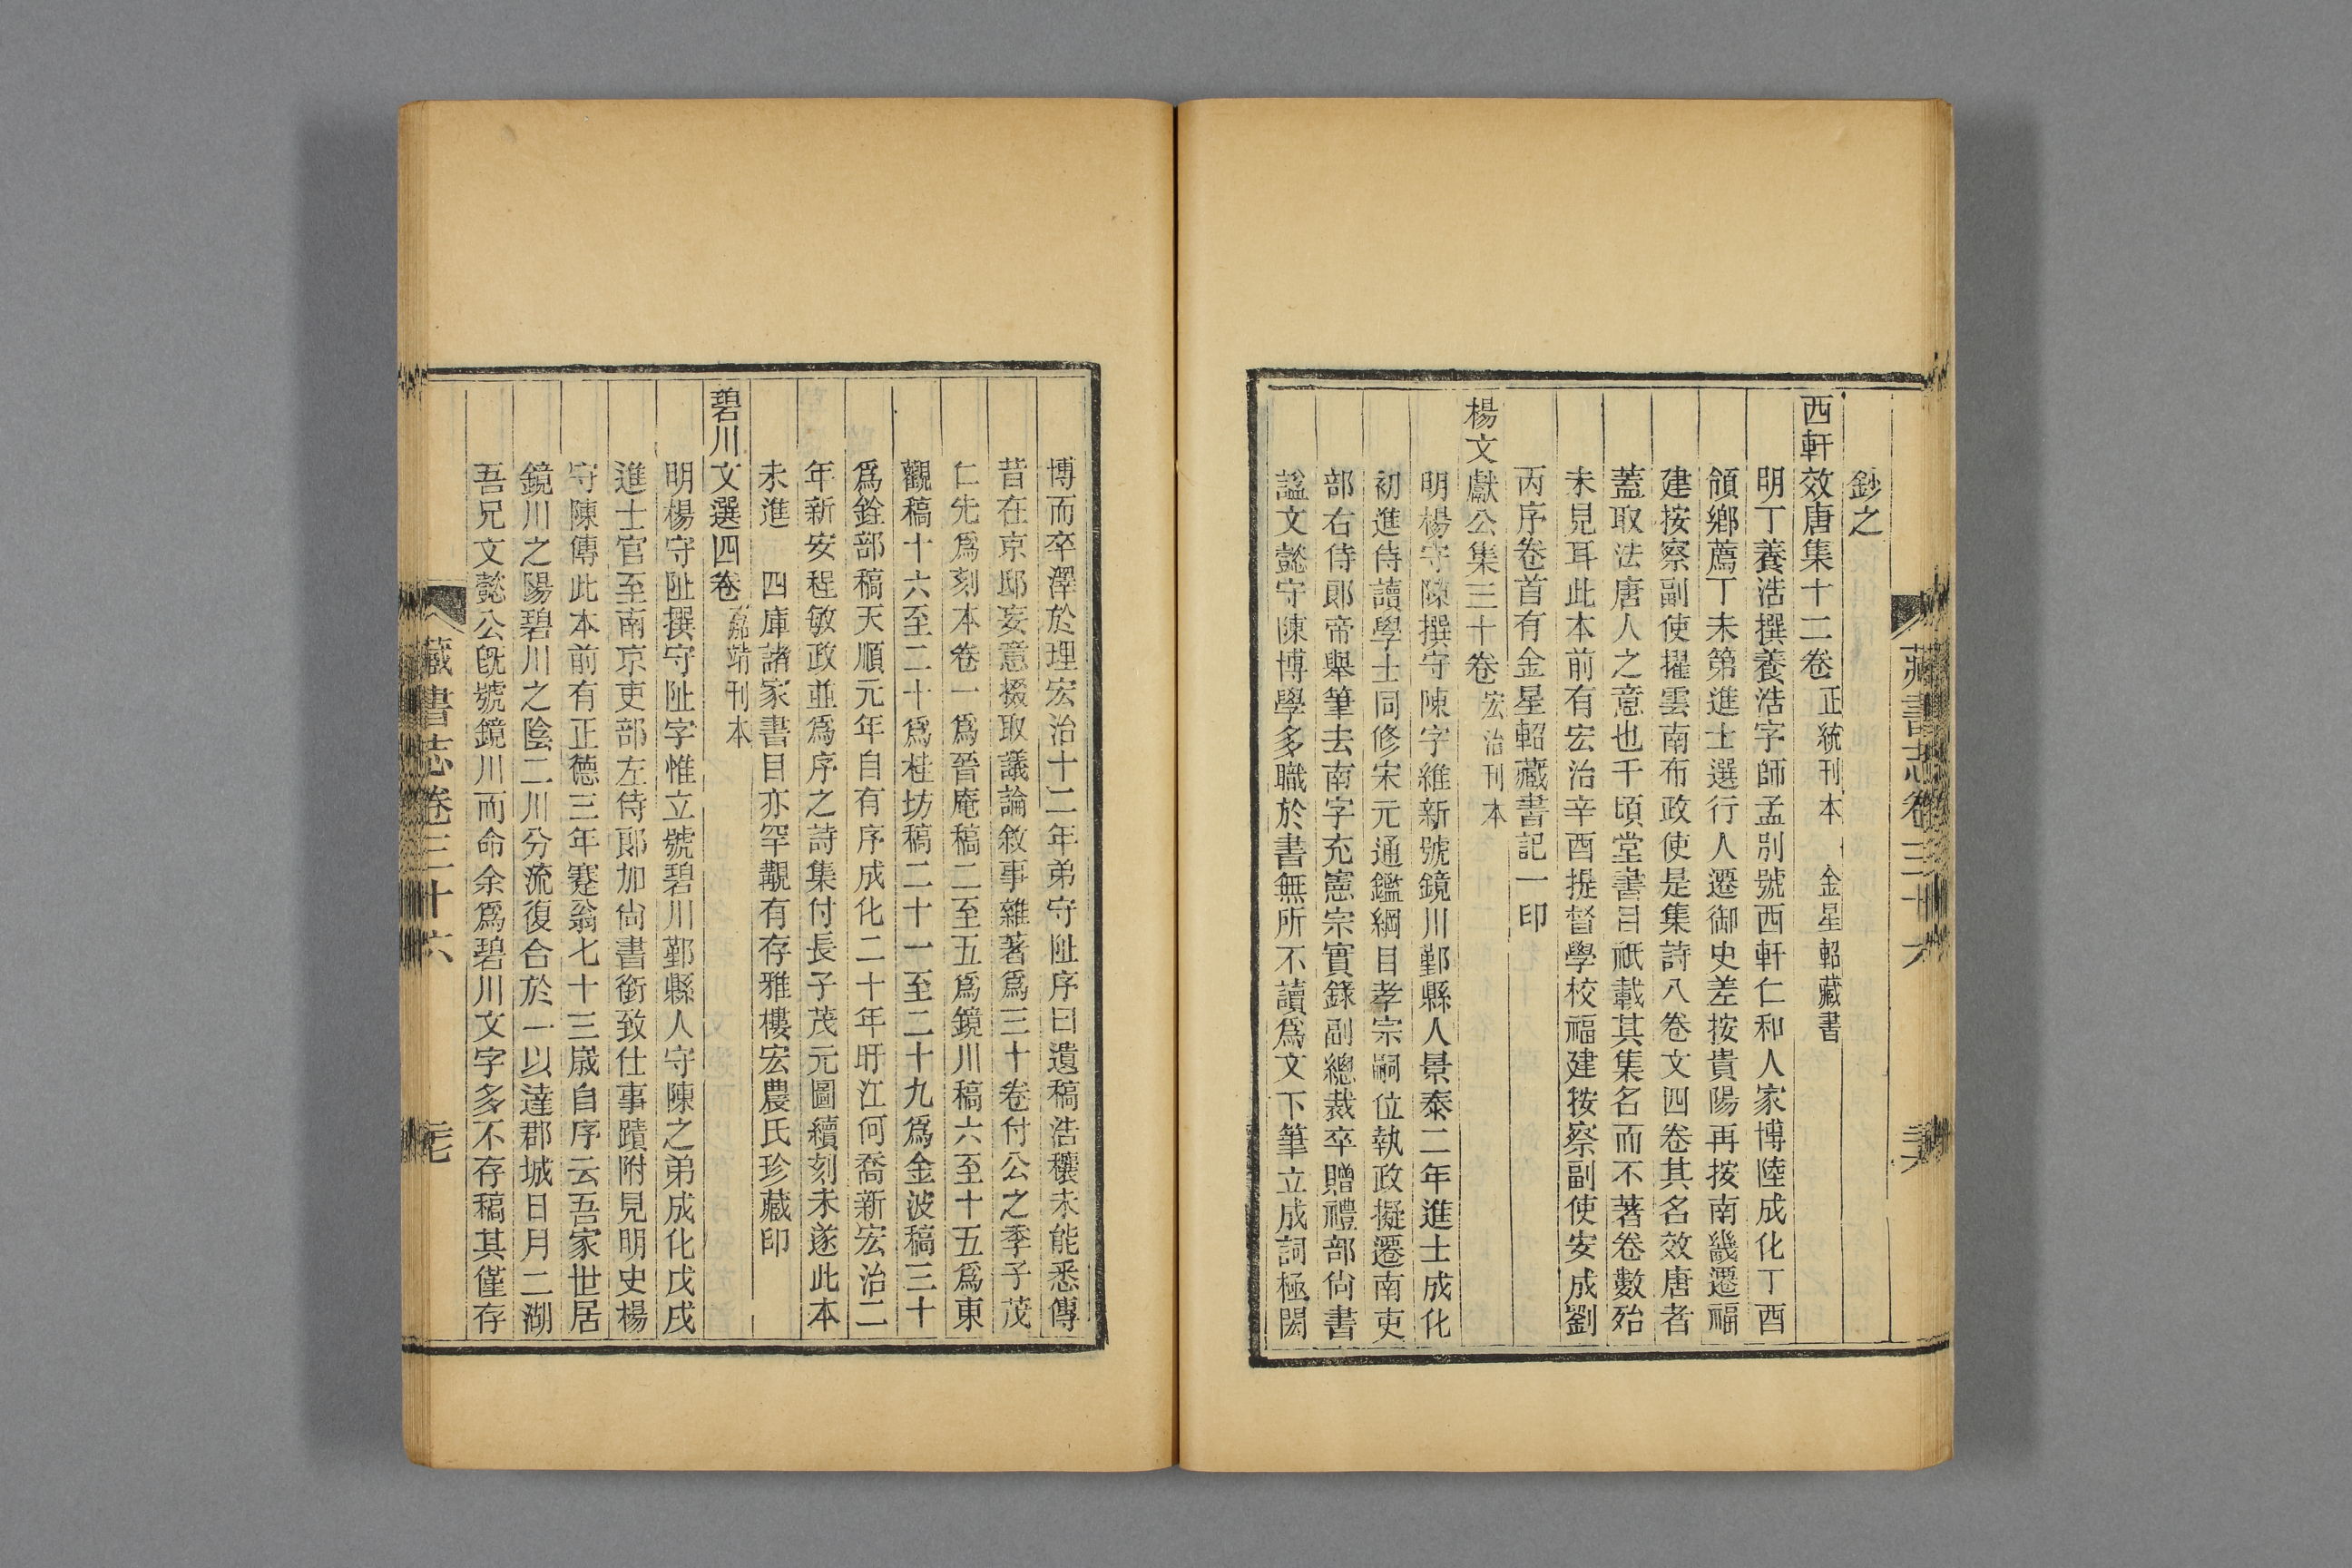 藏書志卷三十六
鈔之
西軒效唐集十二卷 正統刊本 金星軺藏書
明丁養浩撰養浩字師孟別號西軒仁和人家博陸成化丁酉
領鄉薦丁未第進士選行人遷御史差按貴陽再按南畿遷福
建按察副使擢雲南布政使是集詩八卷文四卷其名效唐者
蓋取法唐人之意也千頃堂書目祇載其集名而不著卷數殆
未見耳此本前有宏治辛酉提督學校福建按察副使安成劉
丙序卷首有金星軺藏書記一印
楊文獻公集三十卷 宏治刊本
明楊守陳撰守陳字維新號鏡川鄞縣人景泰二年進士成化
初進侍讀學士同修宋元通鑑綱目孝宗嗣位執政擬遷南吏
部右侍郎帝舉筆去南字充憲宗實錄副總裁卒贈禮部尙書
諡文懿守陳博學多職於書無所不讀爲文下筆立成詞極閎
博而卒澤於理宏治十二年弟守阯序曰遺稿浩穰未能悉傳
昔在京邸妄意掇取議論敘事雜著爲三十卷付公之季子茂
仁先爲刻本卷一爲晉庵稿二至五爲鏡川稿六至十五爲東
觀稿十六至二十爲桂坊稿二十一至二十九爲金波稿三十
爲銓部稿天順元年自有序成化二十年旴江何喬新宏治二
年新安程敏政並爲序之詩集付長子茂元圖續刻未遂此本
未進 四庫諸家書目亦罕覯有存雅樓宏農氏珍藏印
碧川文選四卷 嘉靖刊本
明楊守阯撰守阯字惟立號碧川鄞縣人守陳之弟成化戊戌
進士官至南京吏部左侍郎加尙書銜致仕事蹟附見明史楊
守陳傳此本前有正德三年蹇翁七十三歲自序云吾家世居
鏡川之陽碧川之陰二川分流復合於一以達郡城日月二湖
吾兄文懿公旣號鏡川而命余爲碧川文字多不存稿其僅存
藏書志卷三十六